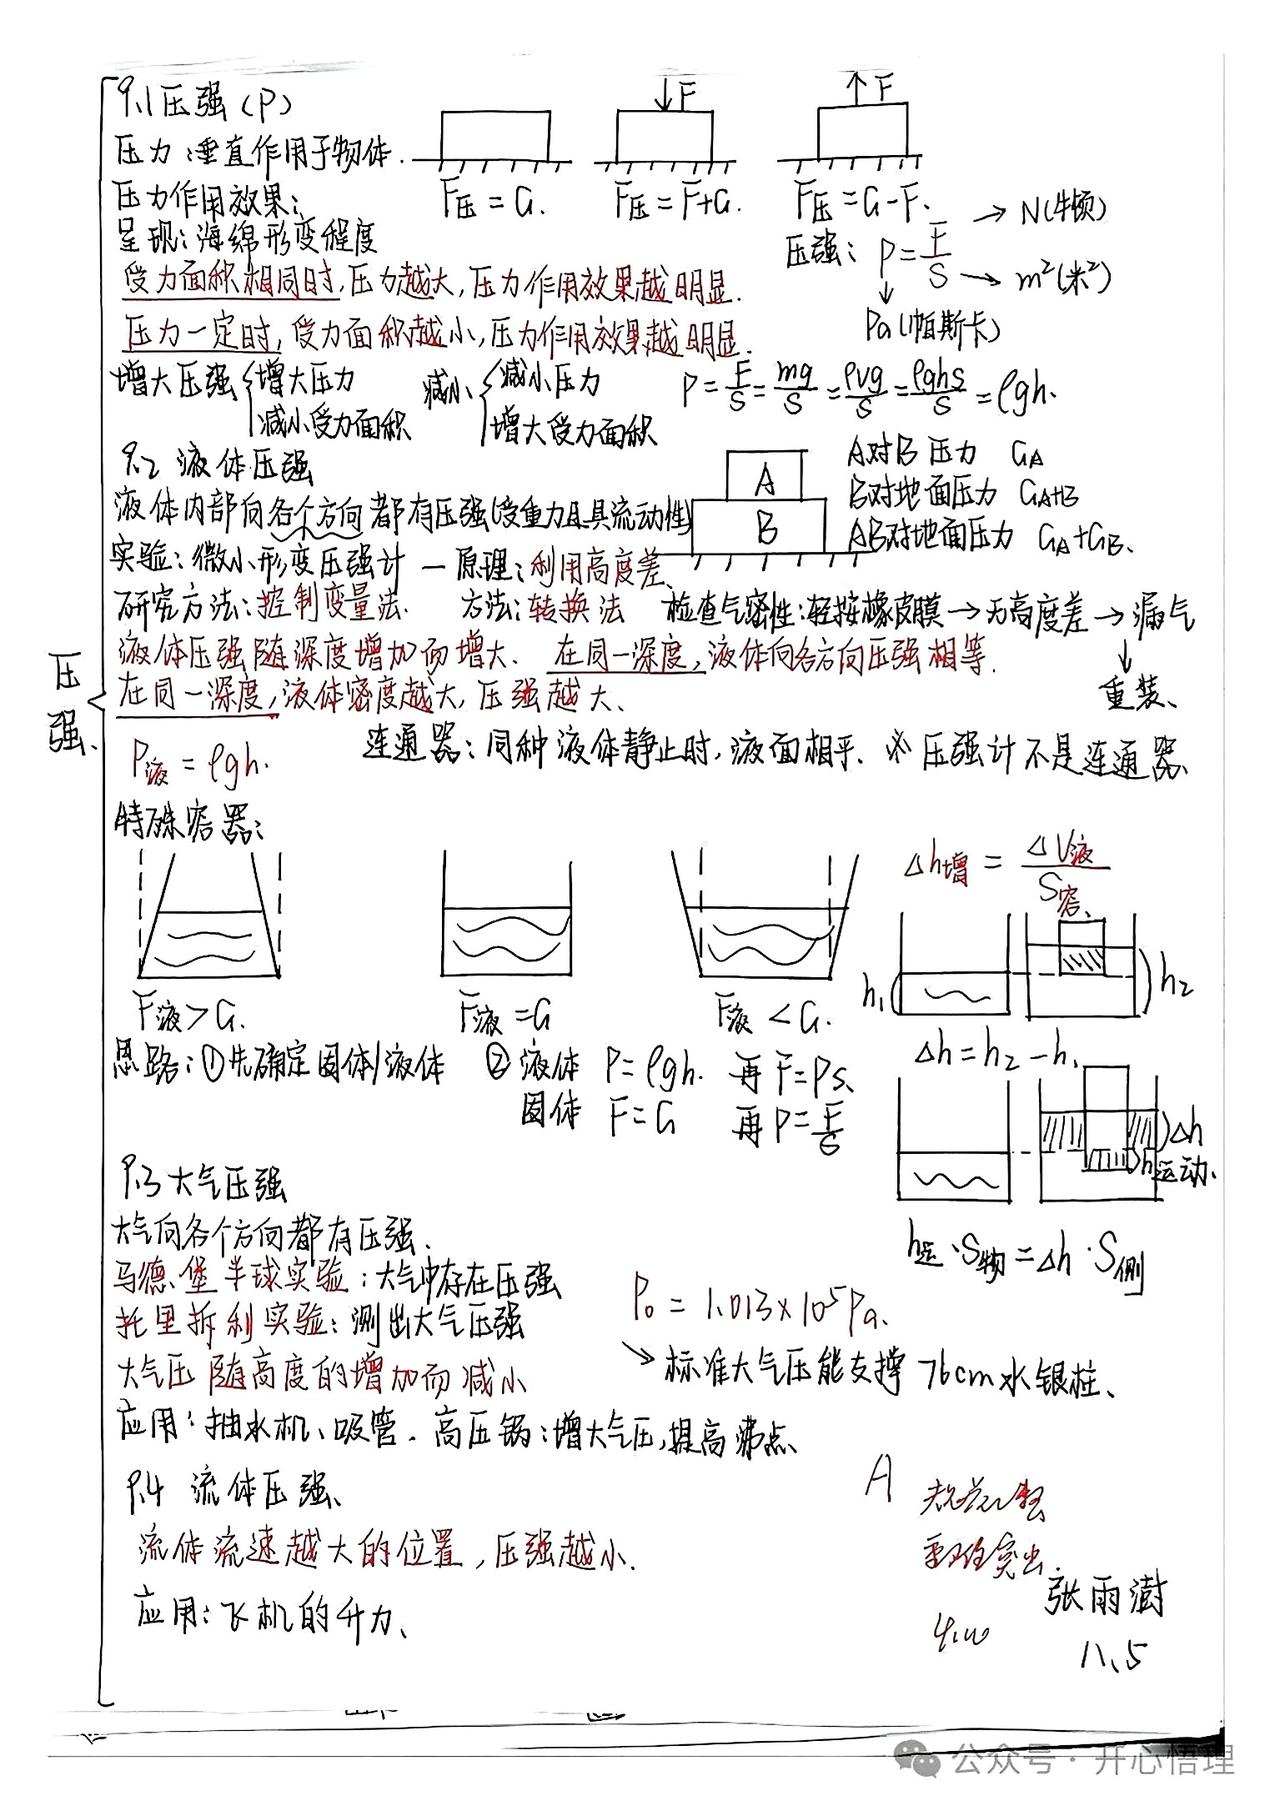 压强、
9.1 压强（P）
压力：垂直作用于物体.
F压=G.
F
F压=F+G.
F
F压=G-F.
压力作用效果：
呈现：海绵形变程度
压强：P=F/S
→N(牛顿)
→m²(米²)
Pa(帕斯卡)
受力面积相同时,压力越大,压力作用效果越明显.
压力一定时,受力面积越小,压力作用效果越明显.
增大压强{增大压力
减小受力面积
减小{减小压力
增大受力面积
P=F/S=mg/S=ρvg/S=ρghs/S=ρgh.
9.2 液体压强
A
B
A对B压力 GA
B对地面压力 GA+B
AB对地面压力 GA+GB、
液体内部向各个方向都有压强(受重力且具流动性)
实验：微小形变压强计 — 原理：利用高度差、
研究方法：控制变量法. 方法：转换法 检查气密性：轻按橡皮膜→无高度差→漏气
↓
重装、
液体压强随深度增加而增大. 在同一深度,液体向各方向压强相等.
在同一深度,液体密度越大,压强越大、
P液=ρgh.
连通器：同种液体静止时,液面相平. ※压强计不是连通器、
特殊容器：
F液>G.
F液=G
F液<G.
Δh增=ΔV液/S容、
h₁
h₂
Δh=h₂-h₁
思路：①先确定固体/液体 ②液体 P=ρgh. 再F=Ps、
固体 F=G 再P=F/S
Δh
h运动、
h运·S物=Δh·S侧
9.3 大气压强
大气向各个方向都有压强、
马德堡半球实验：大气中存在压强
托里拆利实验：测出大气压强
P₀=1.013×10⁵Pa.
↘标准大气压能支撑76cm水银柱、
大气压随高度的增加而减小
应用：抽水机、吸管. 高压锅：增大气压,提高沸点、
9.4 流体压强、
流体流速越大的位置,压强越小.
应用：飞机的升力、
A
突出.
张雨澍
八、5
公众号·开心悟理